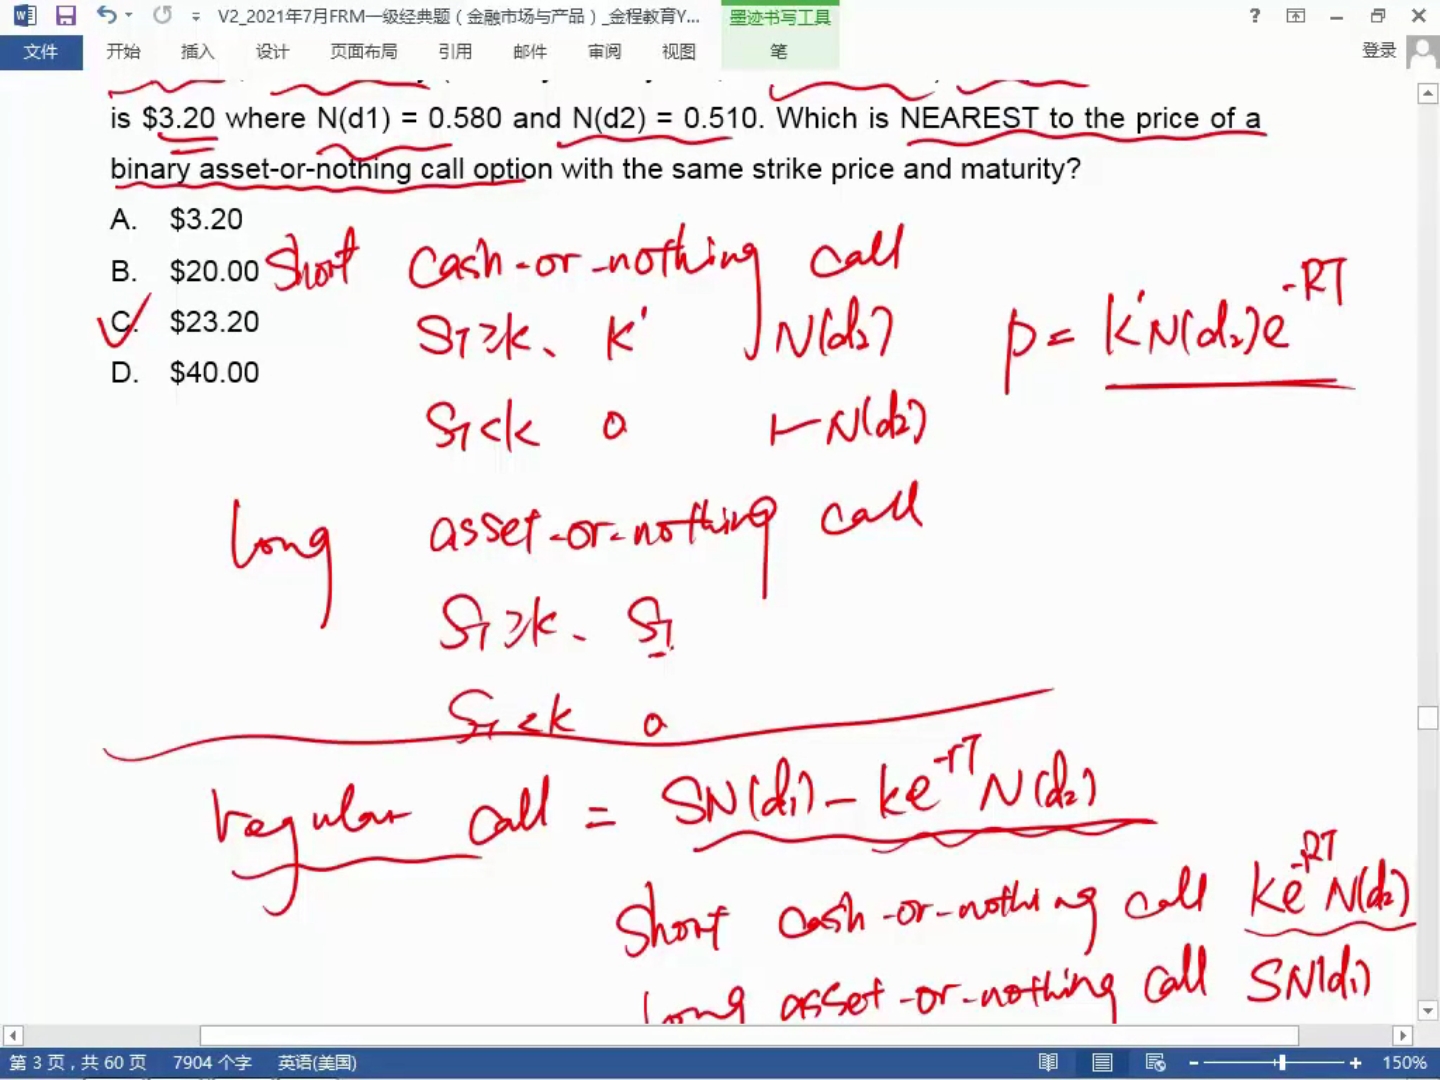 V2_2021年7月FRM一级经典题（金融市场与产品）_金程教育Y...
墨迹书写工具
文件 开始 插入 设计 页面布局 引用 邮件 审阅 视图 笔 登录
is $3.20 where N(d1) = 0.580 and N(d2) = 0.510. Which is NEAREST to the price of a
binary asset-or-nothing call option with the same strike price and maturity?
A. $3.20
B. $20.00
C. $23.20
D. $40.00
Short cash-or-nothing call
S_T≥k、 k' N(d₂)
p = k'N(d₂)e^{-RT}
S_T<k 0 1-N(d₂)
long asset-or-nothing call
S_T≥k、 S_T
S_T<k 0
regular call = SN(d₁) - ke^{-rT} N(d₂)
short cash-or-nothing call ke^{-RT} N(d₂)
long asset-or-nothing call SN(d₁)
第 3 页，共 60 页 7904 个字 英语(美国) 150%